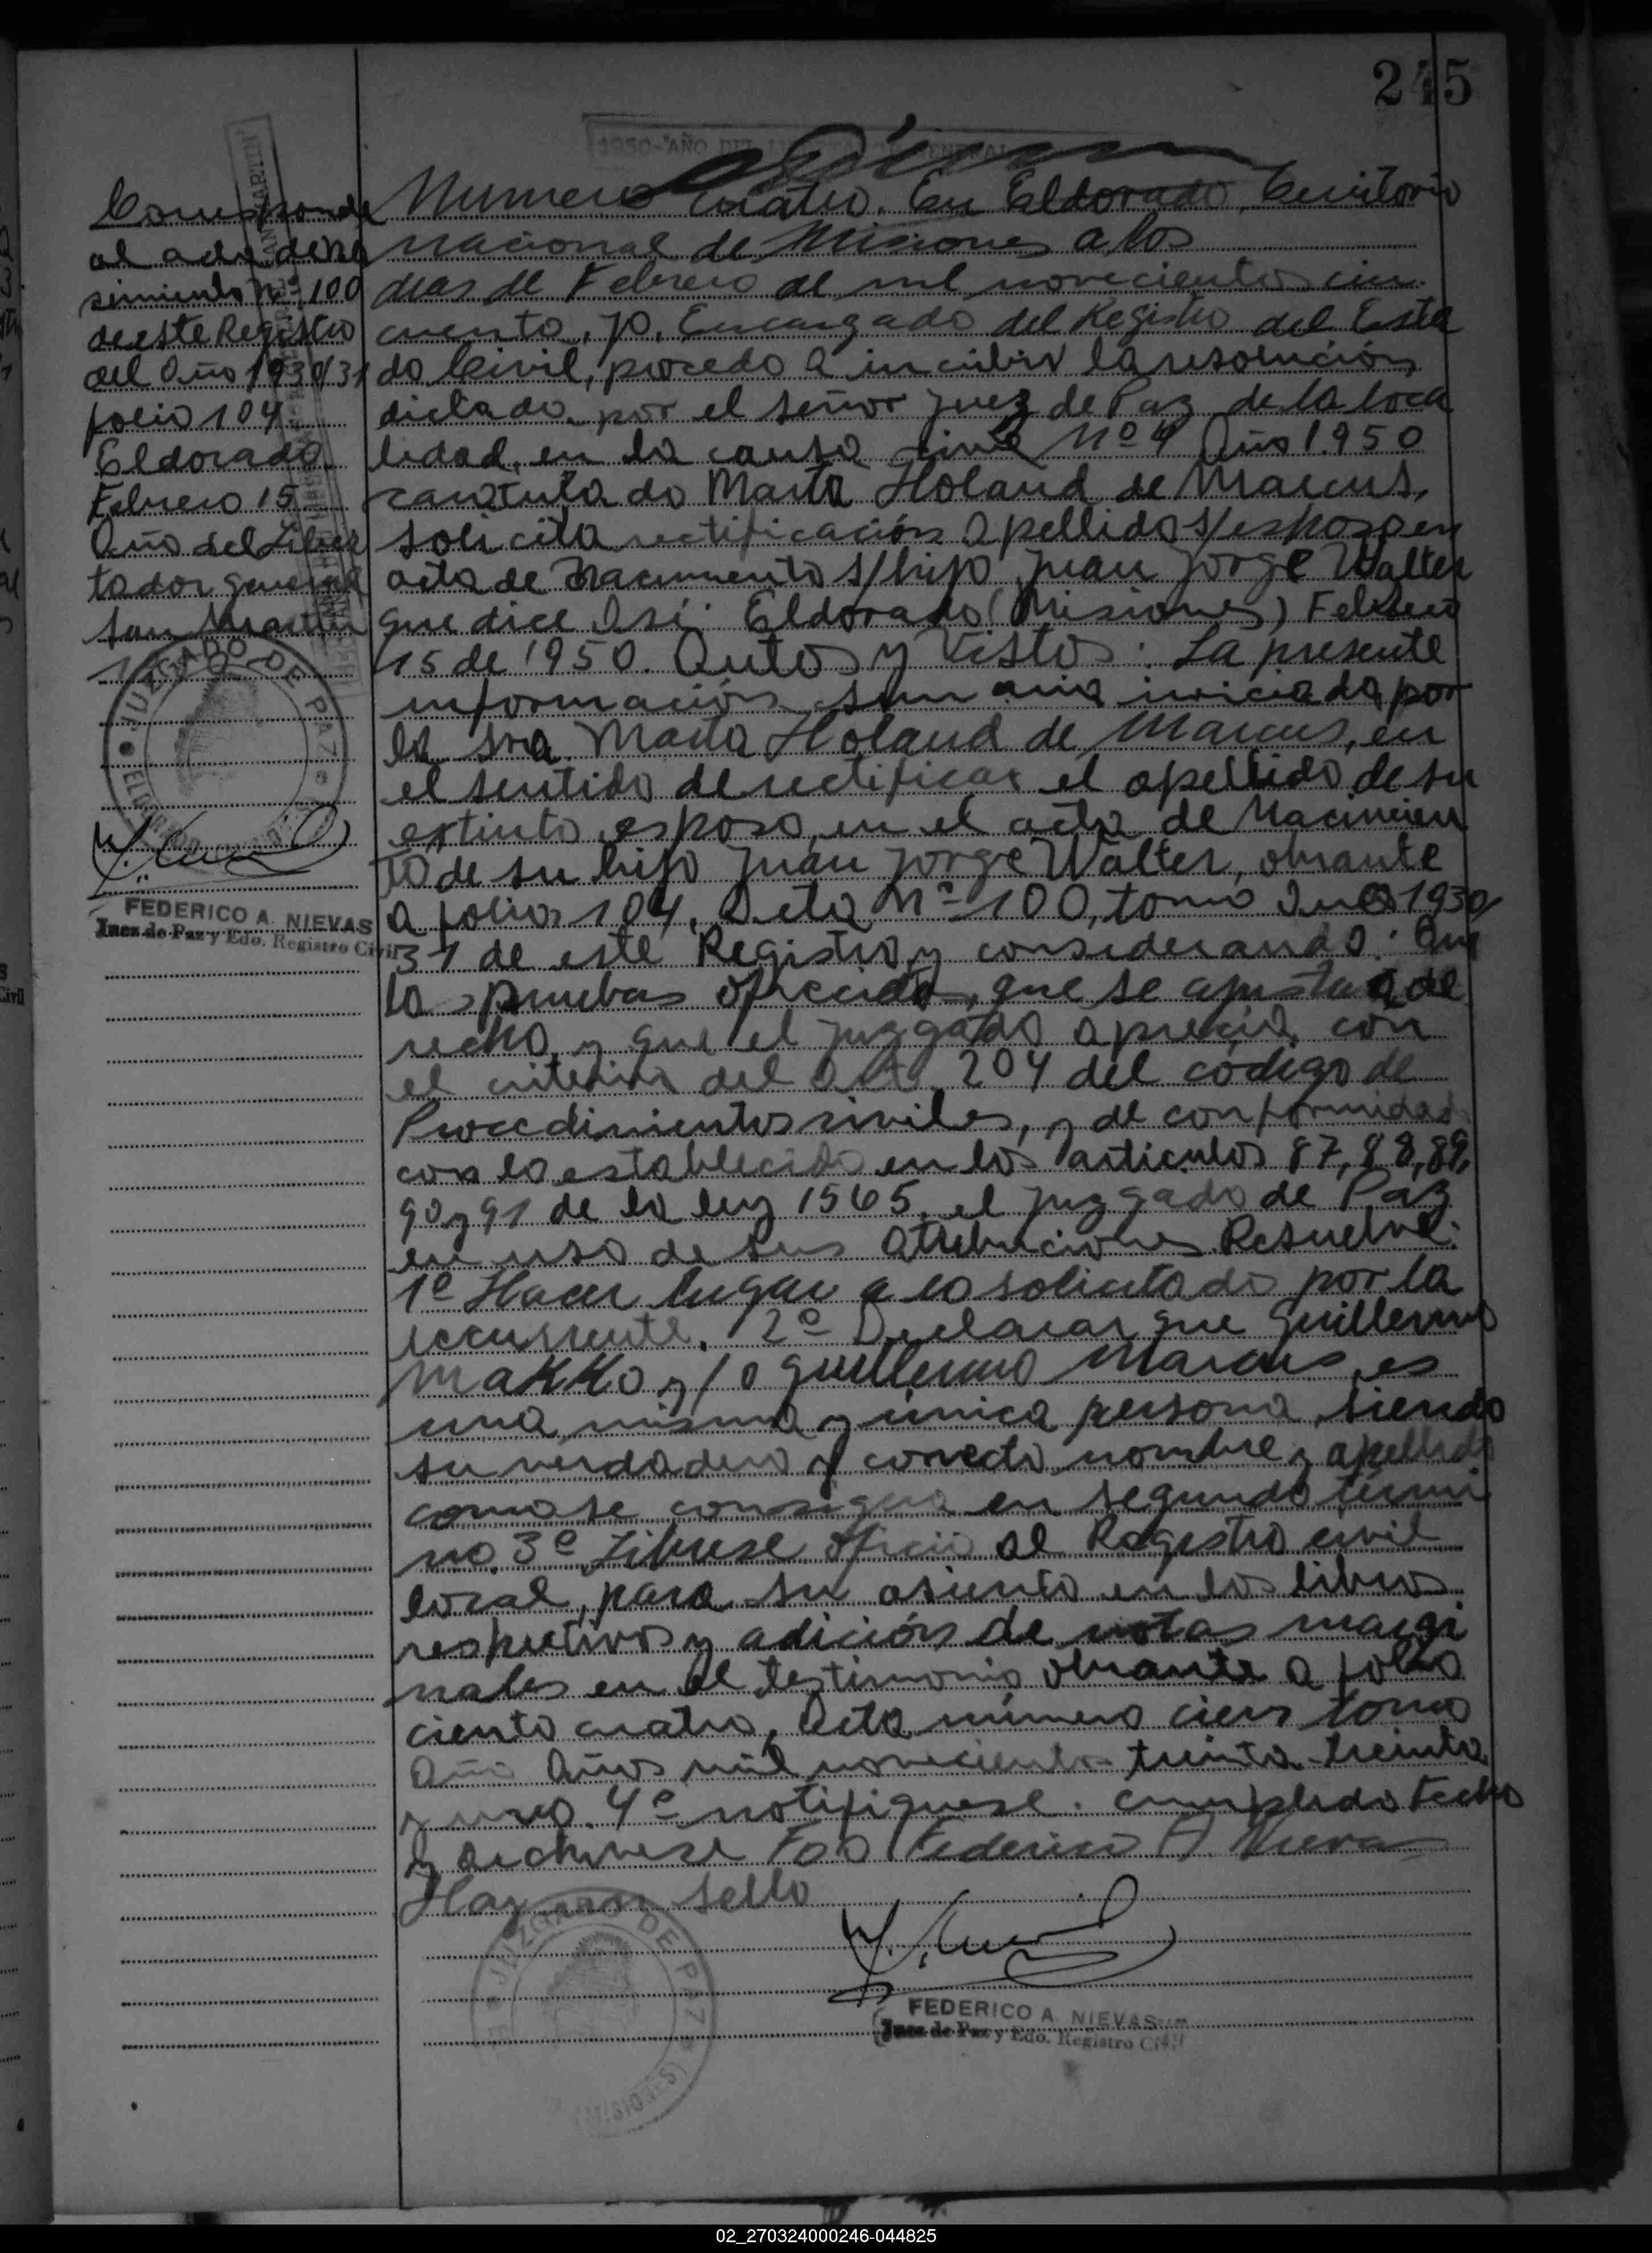 245
1950-"AÑO DEL LIBERTADOR GENERAL
Corresponde
al acta de na
simiento Nº 100
de este Registro
del Año 1930/31
folio 104
Eldorado
Febrero 15
Año del Liber
tador general
San Martin
JUZGADO DE PAZ
ELDORADO
FEDERICO A. NIEVAS
Juez de Paz y Edo. Registro Civil
Numero cuatro. En Eldorado, Territorio
nacional de Misiones a los
dias de Febrero de mil novecientos cin
cuenta, yo, Encargado del Registro del Esta
do Civil, procedo a inscribir la resolución
dictada por el señor Juez de Paz de la loca
lidad, en la causa civil Nº 4 Año 1.950
caratulado Marta Holand de Marcus,
solicita rectificación apellido s/esposo en
acta de Nacimiento s/hijo Juan Jorge Walter
que dice Así: Eldorado (Misiones) Febrero
15 de 1950. Autos y Vistos: La presente
información sumaria iniciada por
la sra. Marta Holand de Marcus, en
el sentido de rectificar el apellido de su
extinto esposo, en el acta de Nacimien
to de su hijo Juan Jorge Walter, obrante
a folios 104, Acta Nº 100, tomo 1930/
31 de este Registro y considerando: Que
las pruebas ofrecida, que se ajusta a de
recho, y que el juzgado aprecia con
el criterio del Art. 204 del código de
Procedimientos civiles, y de conformidad
con lo establecido en los articulos 87, 88, 89,
90 y 91 de la ley 1565, el juzgado de Paz
en uso de sus atribuciones Resuelve:
1º Hacer lugar a lo solicitado por la
recurrente. 2º Declarar que Guillermo
Makko y/o Guillermo Marcus es
una misma y única persona, siendo
su verdadero y correcto nombre y apellido
como se consigna en segundo térmi
no. 3º Librese oficio al Registro civil
local, para su asiento en los libros
respectivos y adición de notas margi
nales en el testimonio obrante a folio
ciento cuatro, Acta número cien tomo
Año Años mil novecientos treinta-treinta
y uno. 4º notifiquese. cumplido Fecho
y archivese Fdo Federico A. Nievas
Hay un Sello
JUZGADO DE PAZ
(MISIONES)
FEDERICO A. NIEVAS
Juez de Paz y Edo. Registro Civil
02_270324000246-044825